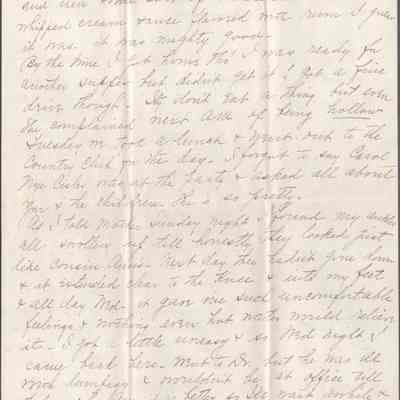 and then some
whipped cream & sauce flavored rum I guess
it was. it was mighty good.
By the time I got home tho' I was ready for
another supper but didn't get it! Got a fine
drive though. He don't eat a thing but even
she complained next AM of being hollow
Tuesday we took a lunch & went out to the
Country Club for the day. I forgot to say Carol
was at the party & asked all about
you & the children. She is so pretty.
As I tell Mother Sunday night I found my ankles
all swollen up till honestly they looked just
like cousin Next day they hadn't gone down
& it extended clear to the knee & into my feet
& all day Wed. it gave me such uncomfortable
feelings & nothing even hot water would relieve
it. I got a little uneasy & so Wed. night I
came back here. Went to Dr. but he was ill
with lumbago & wouldn't be at office till
better to wait awhile &